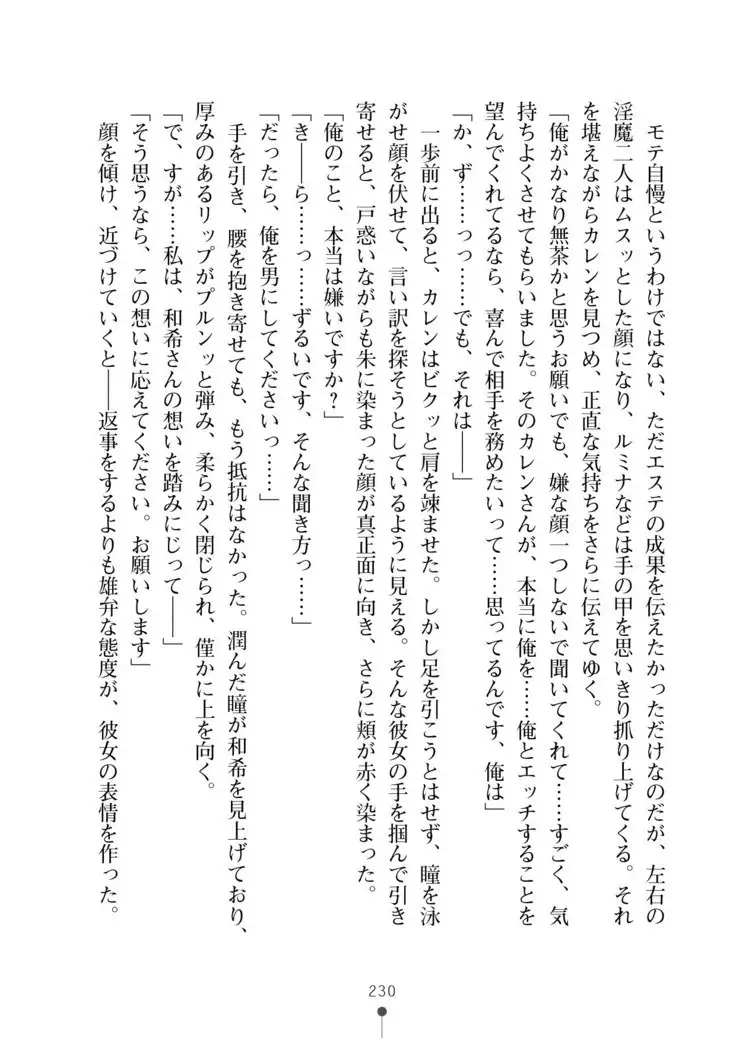 モテ自慢というわけではない、ただエステの成果を伝えたかっただけなのだが、左右の
淫魔二人はムスッとした顔になり、ルミナなどは手の甲を思いきり抓り上げてくる。それ
を堪えながらカレンを見つめ、正直な気持ちをさらに伝えてゆく。
「俺がかなり無茶かと思うお願いでも、嫌な顔一つしないで聞いてくれて……すごく、気
持ちよくさせてもらいました。そのカレンさんが、本当に俺を……俺とエッチすることを
望んでくれてるなら、喜んで相手を務めたいって……思ってるんです、俺は」
「か、ず……っっ……でも、それは――」
　一歩前に出ると、カレンはビクッと肩を竦ませた。しかし足を引こうとはせず、瞳を泳
がせ顔を伏せて、言い訳を探そうとしているように見える。そんな彼女の手を掴んで引き
寄せると、戸惑いながらも朱に染まった顔が真正面に向き、さらに頬が赤く染まった。
「俺のこと、本当は嫌いですか？」
「き――ら……っ……ずるいです、そんな聞き方っ……」
「だったら、俺を男にしてくださいっ……」
　手を引き、腰を抱き寄せても、もう抵抗はなかった。潤んだ瞳が和希を見上げており、
厚みのあるリップがプルンッと弾み、柔らかく閉じられ、僅かに上を向く。
「で、すが……私は、和希さんの想いを踏みにじって――」
「そう思うなら、この想いに応えてください。お願いします」
　顔を傾け、近づけていくと――返事をするよりも雄弁な態度が、彼女の表情を作った。
230